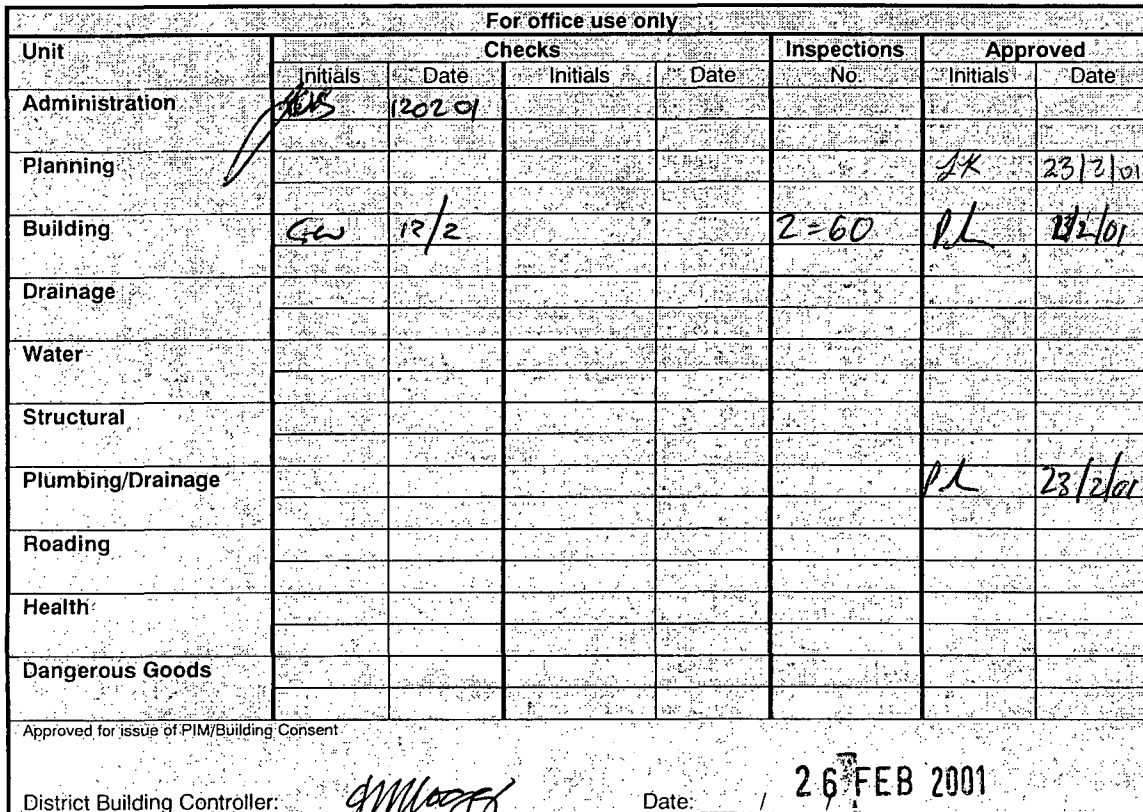 For office use only
Unit Checks Inspections Approved
Initials Date Initials Date No. Initials Date
Administration 120201
Planning 23/2/01
Building 12/2 2=60 /2/01
Drainage
Water
Structural
Plumbing/Drainage 23/2/01
Roading
Health
Dangerous Goods
Approved for issue of PIM/Building Consent
District Building Controller: Date: / / 26 FEB 2001